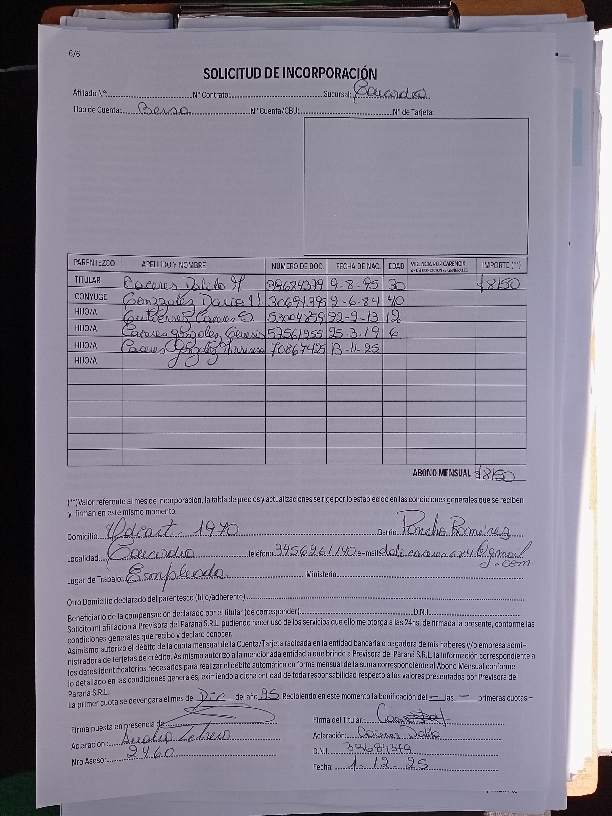 6/6
SOLICITUD DE INCORPORACIÓN
Afiliado Nº N° Contrato: Sucursal: Concordia
Tipo de Cuenta: Bersa N° Cuenta/CBU: N° de Tarjeta:
PARENTEZCO APELLIDO Y NOMBRE NUMERO DE DOC. FECHA DE NAC. EDAD IMPORTE (**)
TITULAR Caceres 9-8-95 30 $8150
CONYUGE Gonzales 30691395 2-6-84 40
HIJO/A Gutierrez Caceres 12
HIJO/A Caceres gonzales, Genesis 57561955 25.3.19 6
HIJO/A Caceres Gonzalez 70867425 13-11-25
HIJO/A
ABONO MENSUAL $8150
(**)Valor referente al mes de incorporación, la tabla de precios y actualizaciones se rige por lo establecido en las condiciones generales que se reciben
y firman en este mismo momento.
Domicilio 1970 Barrio: Pancho Ramirez
Localidad Concordia Teléfono e-mail
Lugar de Trabajo: Empleada Ministerio:
Otro Domicilio declarado del parentesco (hijo/adherente)
Beneficiario de la compensación declarado por el titular (de corresponder) D.N.I.
Solicito mi afiliación a Previsora del Paraná S.R.L. pudiendo hacer uso de los servicios que ello me otorga a las 24hs. de firmada la presente, conforme las
condiciones generales que recibo y declaro conocer.
Asimismo autorizo el débito de la cuota mensual de la Cuenta/Tarjeta radicada en la entidad bancaria o pagadora de mis haberes y/o empresa admi-
nistradora de tarjetas de crédito. Asimismo autorizo a la mencionada entidad a que brinde a Previsora del Paraná S.R.L. la información correspondiente a
los datos identificatorios necesarios para realizar el débito automático en forma mensual de la suma correspondiente al Abono Mensual conforme
lo detallado en las condiciones generales, eximiendo a dicha entidad de toda responsabilidad respecto a los valores presentados por Previsora del
Paraná S.R.L.
La primer cuota se devengará el mes de Dic de año 25 Recibiendo en este momento la bonificación del — las — primeras cuotas
Firma puesta en presencia de: Firma del Titular:
Aclaración: Aclaración: Caceres
Nro Asesor: 2460 D.N.I.
Fecha: 1-12-25